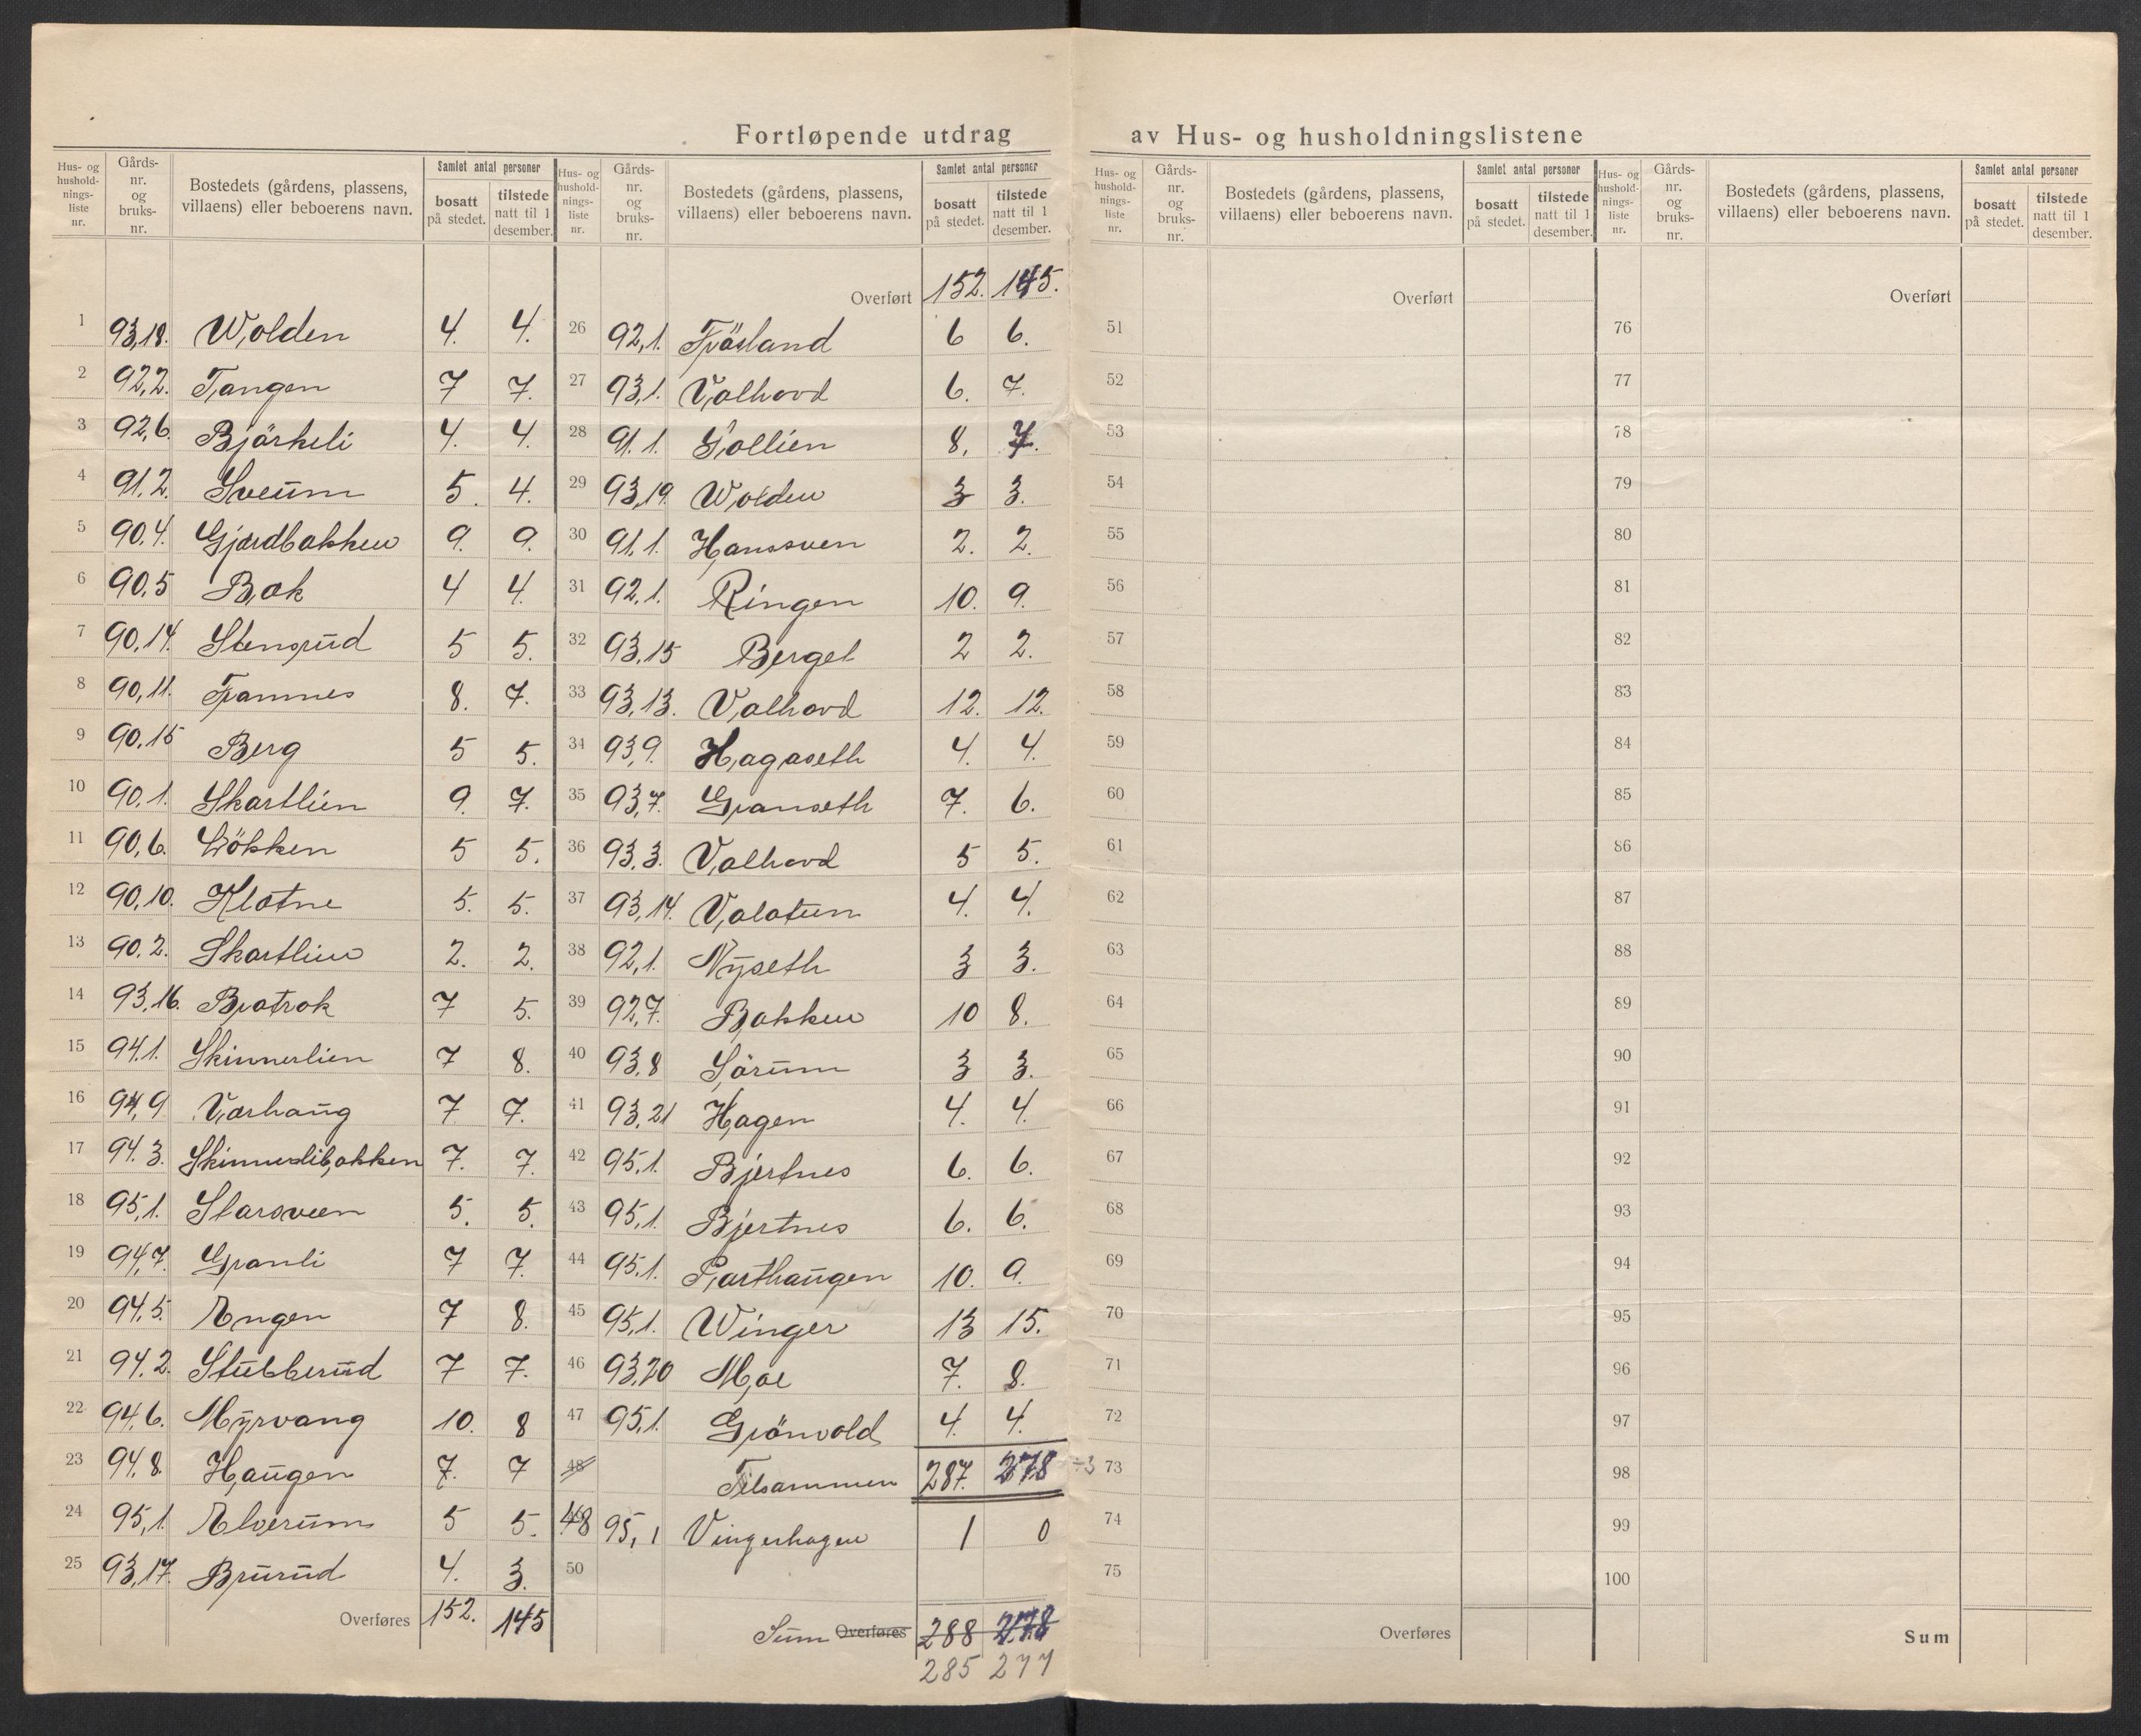 Fortløpende utdrag av Hus- og husholdningslistene
Hus- og husholdningsliste nr. | Gårds-nr. og bruks-nr. | Bostedets (gårdens, plassens, villaens) eller beboerens navn. | Samlet antal personer | bosatt på stedet. | tilstede natt til 1 desember.
1 93,18. Wolden 4. 4.
2 92,2. Tangen 7 7.
3 92,6. Björkeli 4. 4.
4 91,2. Sveum 5. 4.
5 90,4. Gjærdbakken 9. 9.
6 90,5 Bak 4 4.
7 90,14. Stensrud 5 5.
8 90,11. Framnes 8. 7.
9 90,15 Berg 5 5.
10 90,1. Skartlien 9. 7.
11 90,6. Lökken 5 5.
12 90,10. Klatne 5. 5.
13 90,2. Skartlien 2. 2.
14 93,16. Bratrok 7 5.
15 94,1. Skinnerlien 7 8.
16 94,9 Varhaug 7 7.
17 94,3. Skinnerlibakken 7. 7.
18 95,1. Starsveen 5. 5.
19 94,7. Granli 7 7.
20 94,5. Engen 7 8.
21 94,2. Stubberud 7 7.
22 94,6. Myrvang 10. 8
23 94,8. Haugen 7. 7
24 95,1. Elverum 5 5.
25 93,17. Brurud 4. 3.
Overføres 152. 145
Hus- og husholdningsliste nr. | Gårds-nr. og bruks-nr. | Bostedets (gårdens, plassens, villaens) eller beboerens navn. | Samlet antal personer | bosatt på stedet. | tilstede natt til 1 desember.
Overført 152. 145.
26 92,1. Fräsland 6 6.
27 93,1. Valhovd 6. 7.
28 91,1. Gollien 8. 7.
29 93,19. Wolden 3 3.
30 91,1. Hanssven 2. 2.
31 92,1. Ringen 10. 9.
32 93,15 Berget 2 2.
33 93,13. Valhovd 12. 12.
34 93,9. Hagaseth 4. 4.
35 93,7. Granseth 7. 6.
36 93,3. Valhovd 5 5.
37 93,14. Valatun 4. 4.
38 92,1. Nyseth 3 3.
39 92,7. Bakken 10 8.
40 93,8 Sörum 3 3.
41 93,21 Hagen 4. 4.
42 95,1. Bjertnes 6. 6.
43 95,1. Bjertnes 6. 6.
44 95,1. Parthaugen 10. 9.
45 95,1. Winger 13 15.
46 93,20 Moe 7. 8.
47 95,1. Grönvold 4. 4.
48 Tilsammen 287. 278 ÷3
48 95,1 Vingerhagen 1 0
50
Sum Overføres 288 278
285 277
Hus- og husholdningsliste nr. | Gårds-nr. og bruks-nr. | Bostedets (gårdens, plassens, villaens) eller beboerens navn. | Samlet antal personer | bosatt på stedet. | tilstede natt til 1 desember.
Overført
51
52
53
54
55
56
57
58
59
60
61
62
63
64
65
66
67
68
69
70
71
72
73
74
75
Overføres
Hus- og husholdningsliste nr. | Gårds-nr. og bruks-nr. | Bostedets (gårdens, plassens, villaens) eller beboerens navn. | Samlet antal personer | bosatt på stedet. | tilstede natt til 1 desember.
Overført
76
77
78
79
80
81
82
83
84
85
86
87
88
89
90
91
92
93
94
95
96
97
98
99
100
Sum